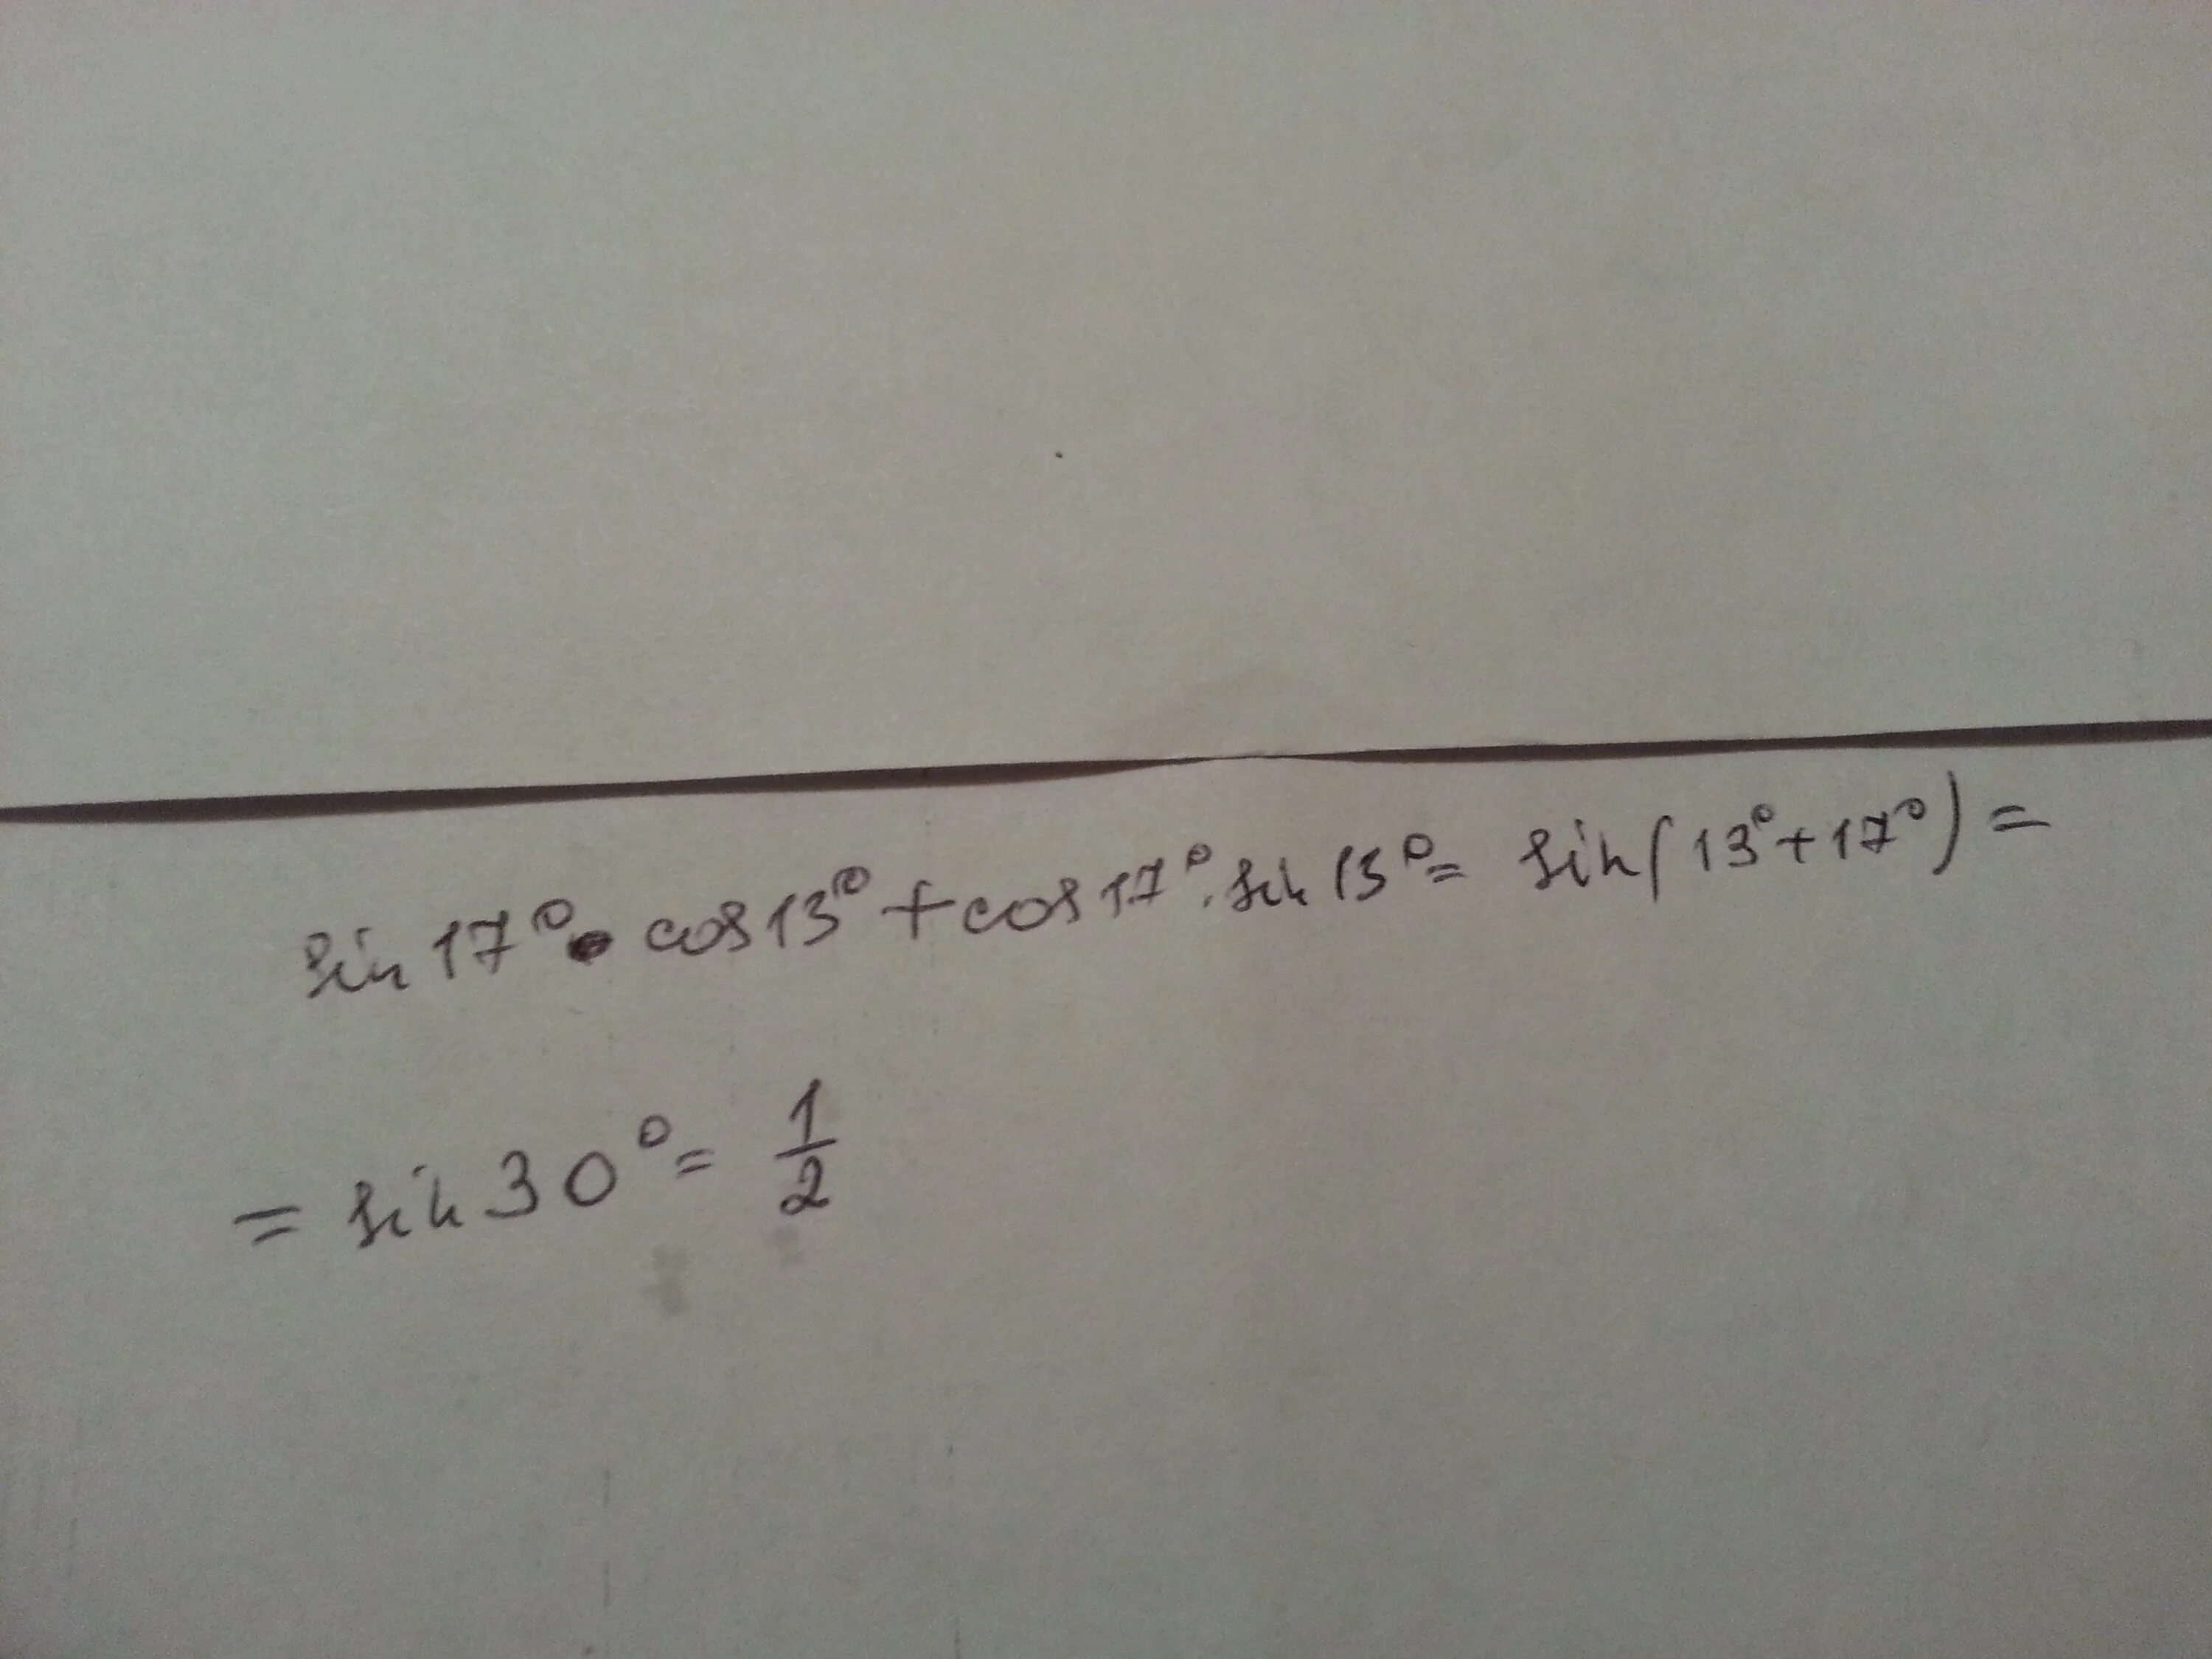 sin 17° · cos 13° + cos 17° · sin 13° = sin(13° + 17°) =
= sin 30° = 1/2